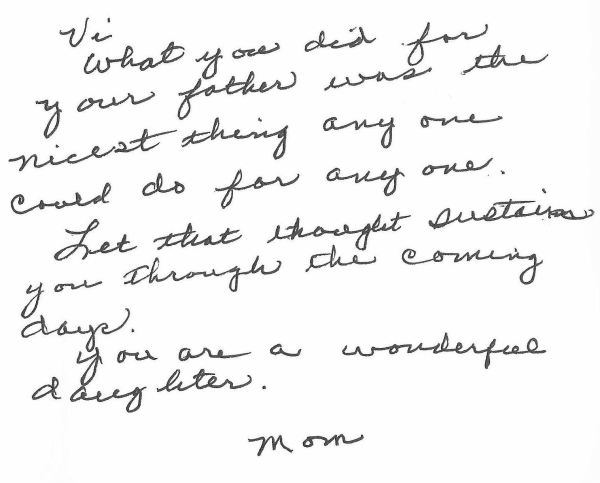 Vi
What you did for
your father was the
nicest thing any one
could do for any one.
Let that thought sustain
you through the coming
days.
You are a wonderful
daughter.
Mom